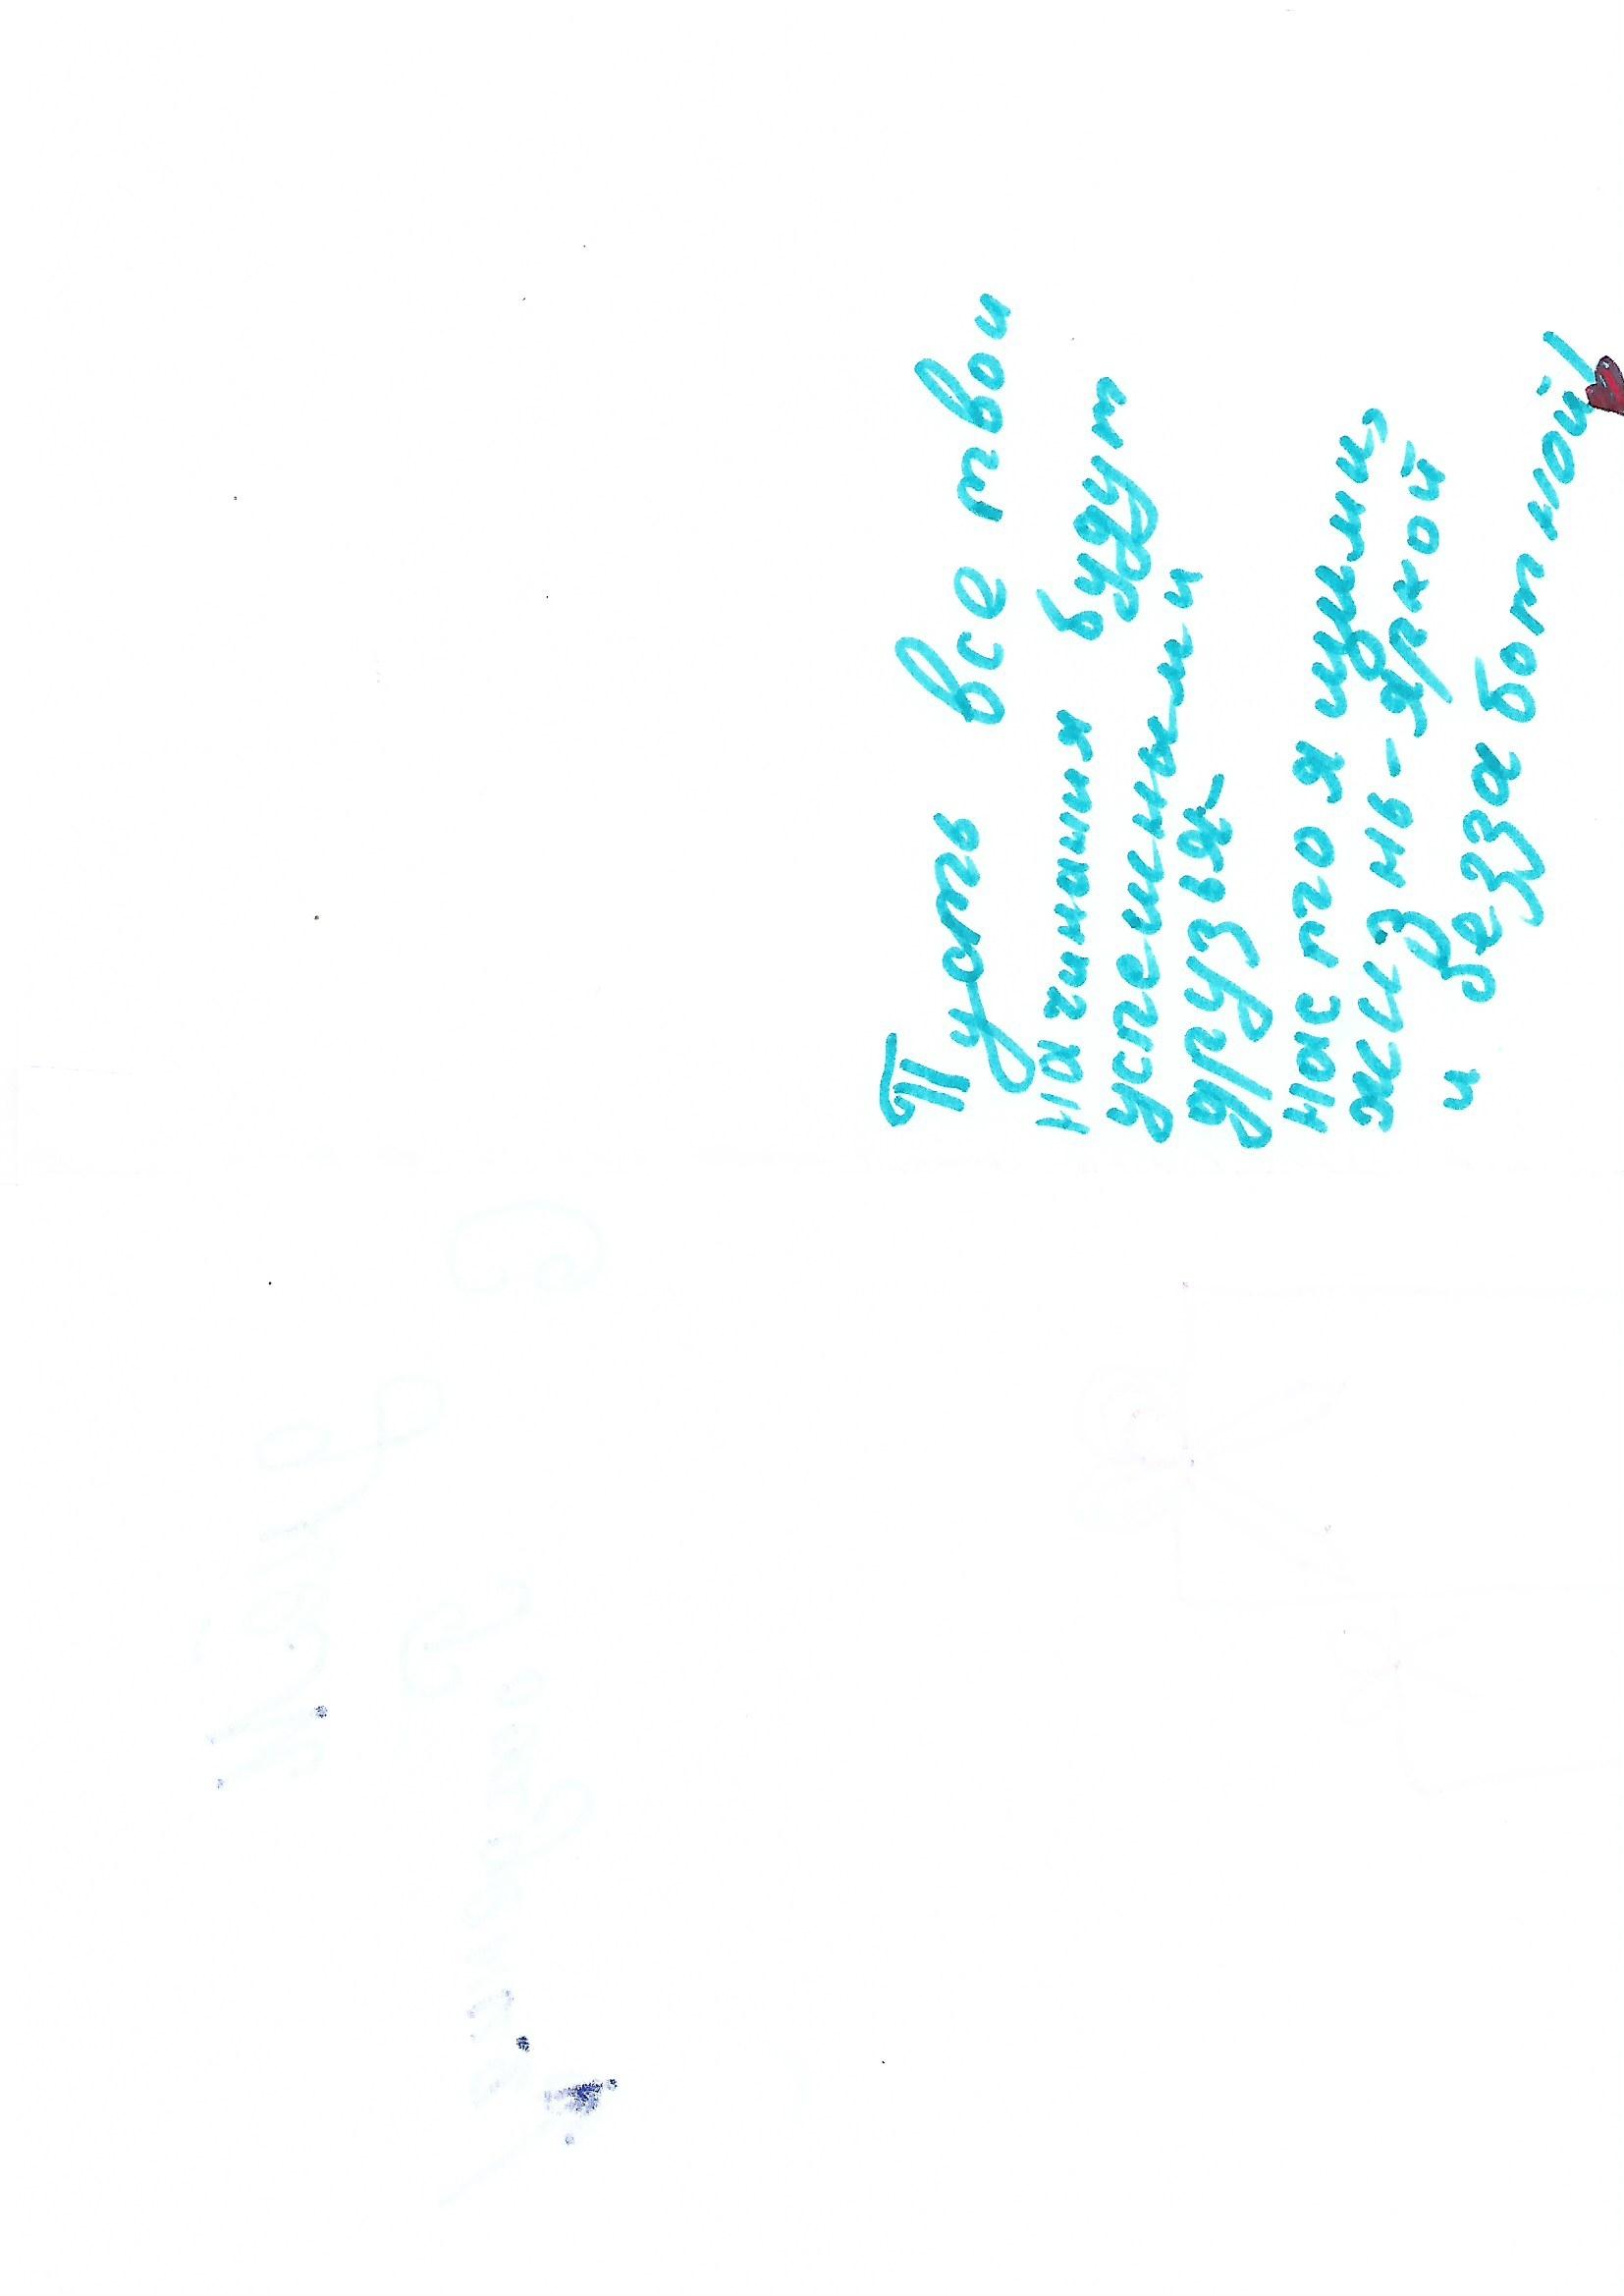 Пусть все твои
начинания будут
успешными
друзья-
настоящими,
жизнь-яркой
и беззаботной!
С днём
Рождения!